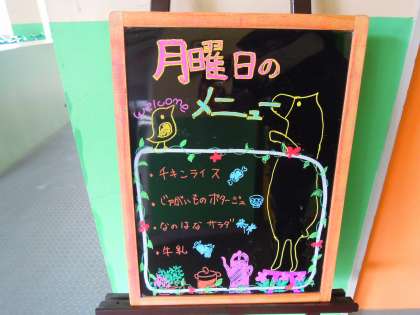 月曜日の
welcome
メニュー
・チキンライス
・じゃがいものポタージュ
・なのはなサラダ
・牛乳